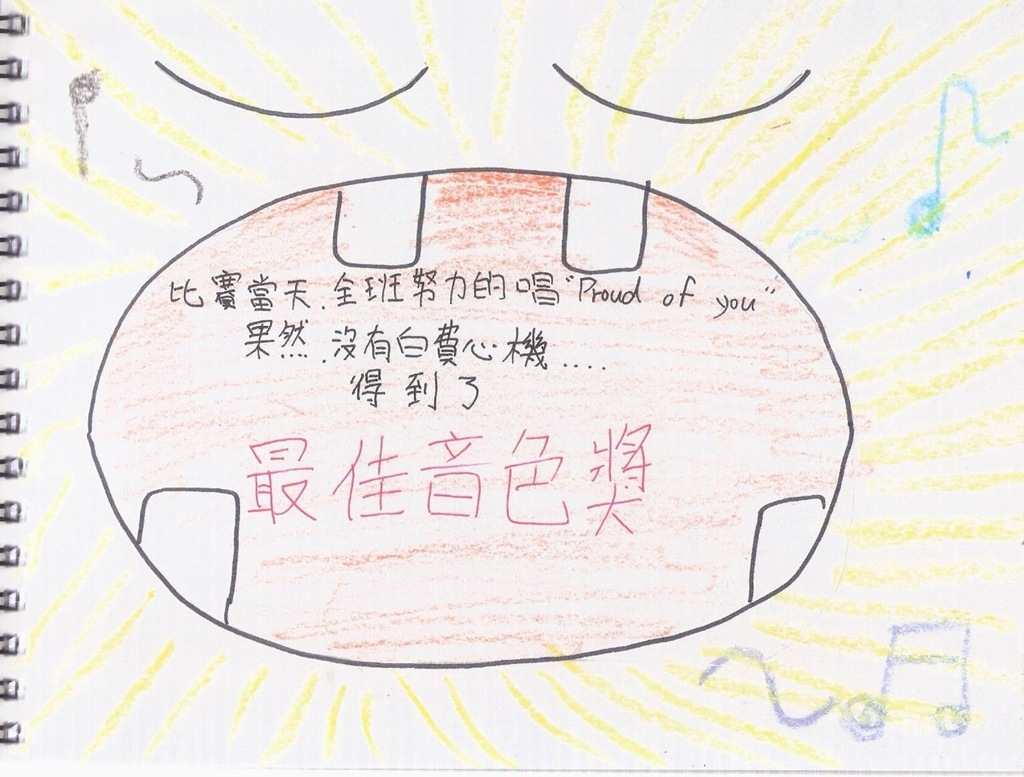 比賽當天.全班努力的唱"Proud of you"
果然.沒有白費心機....
得到了
最佳音色獎